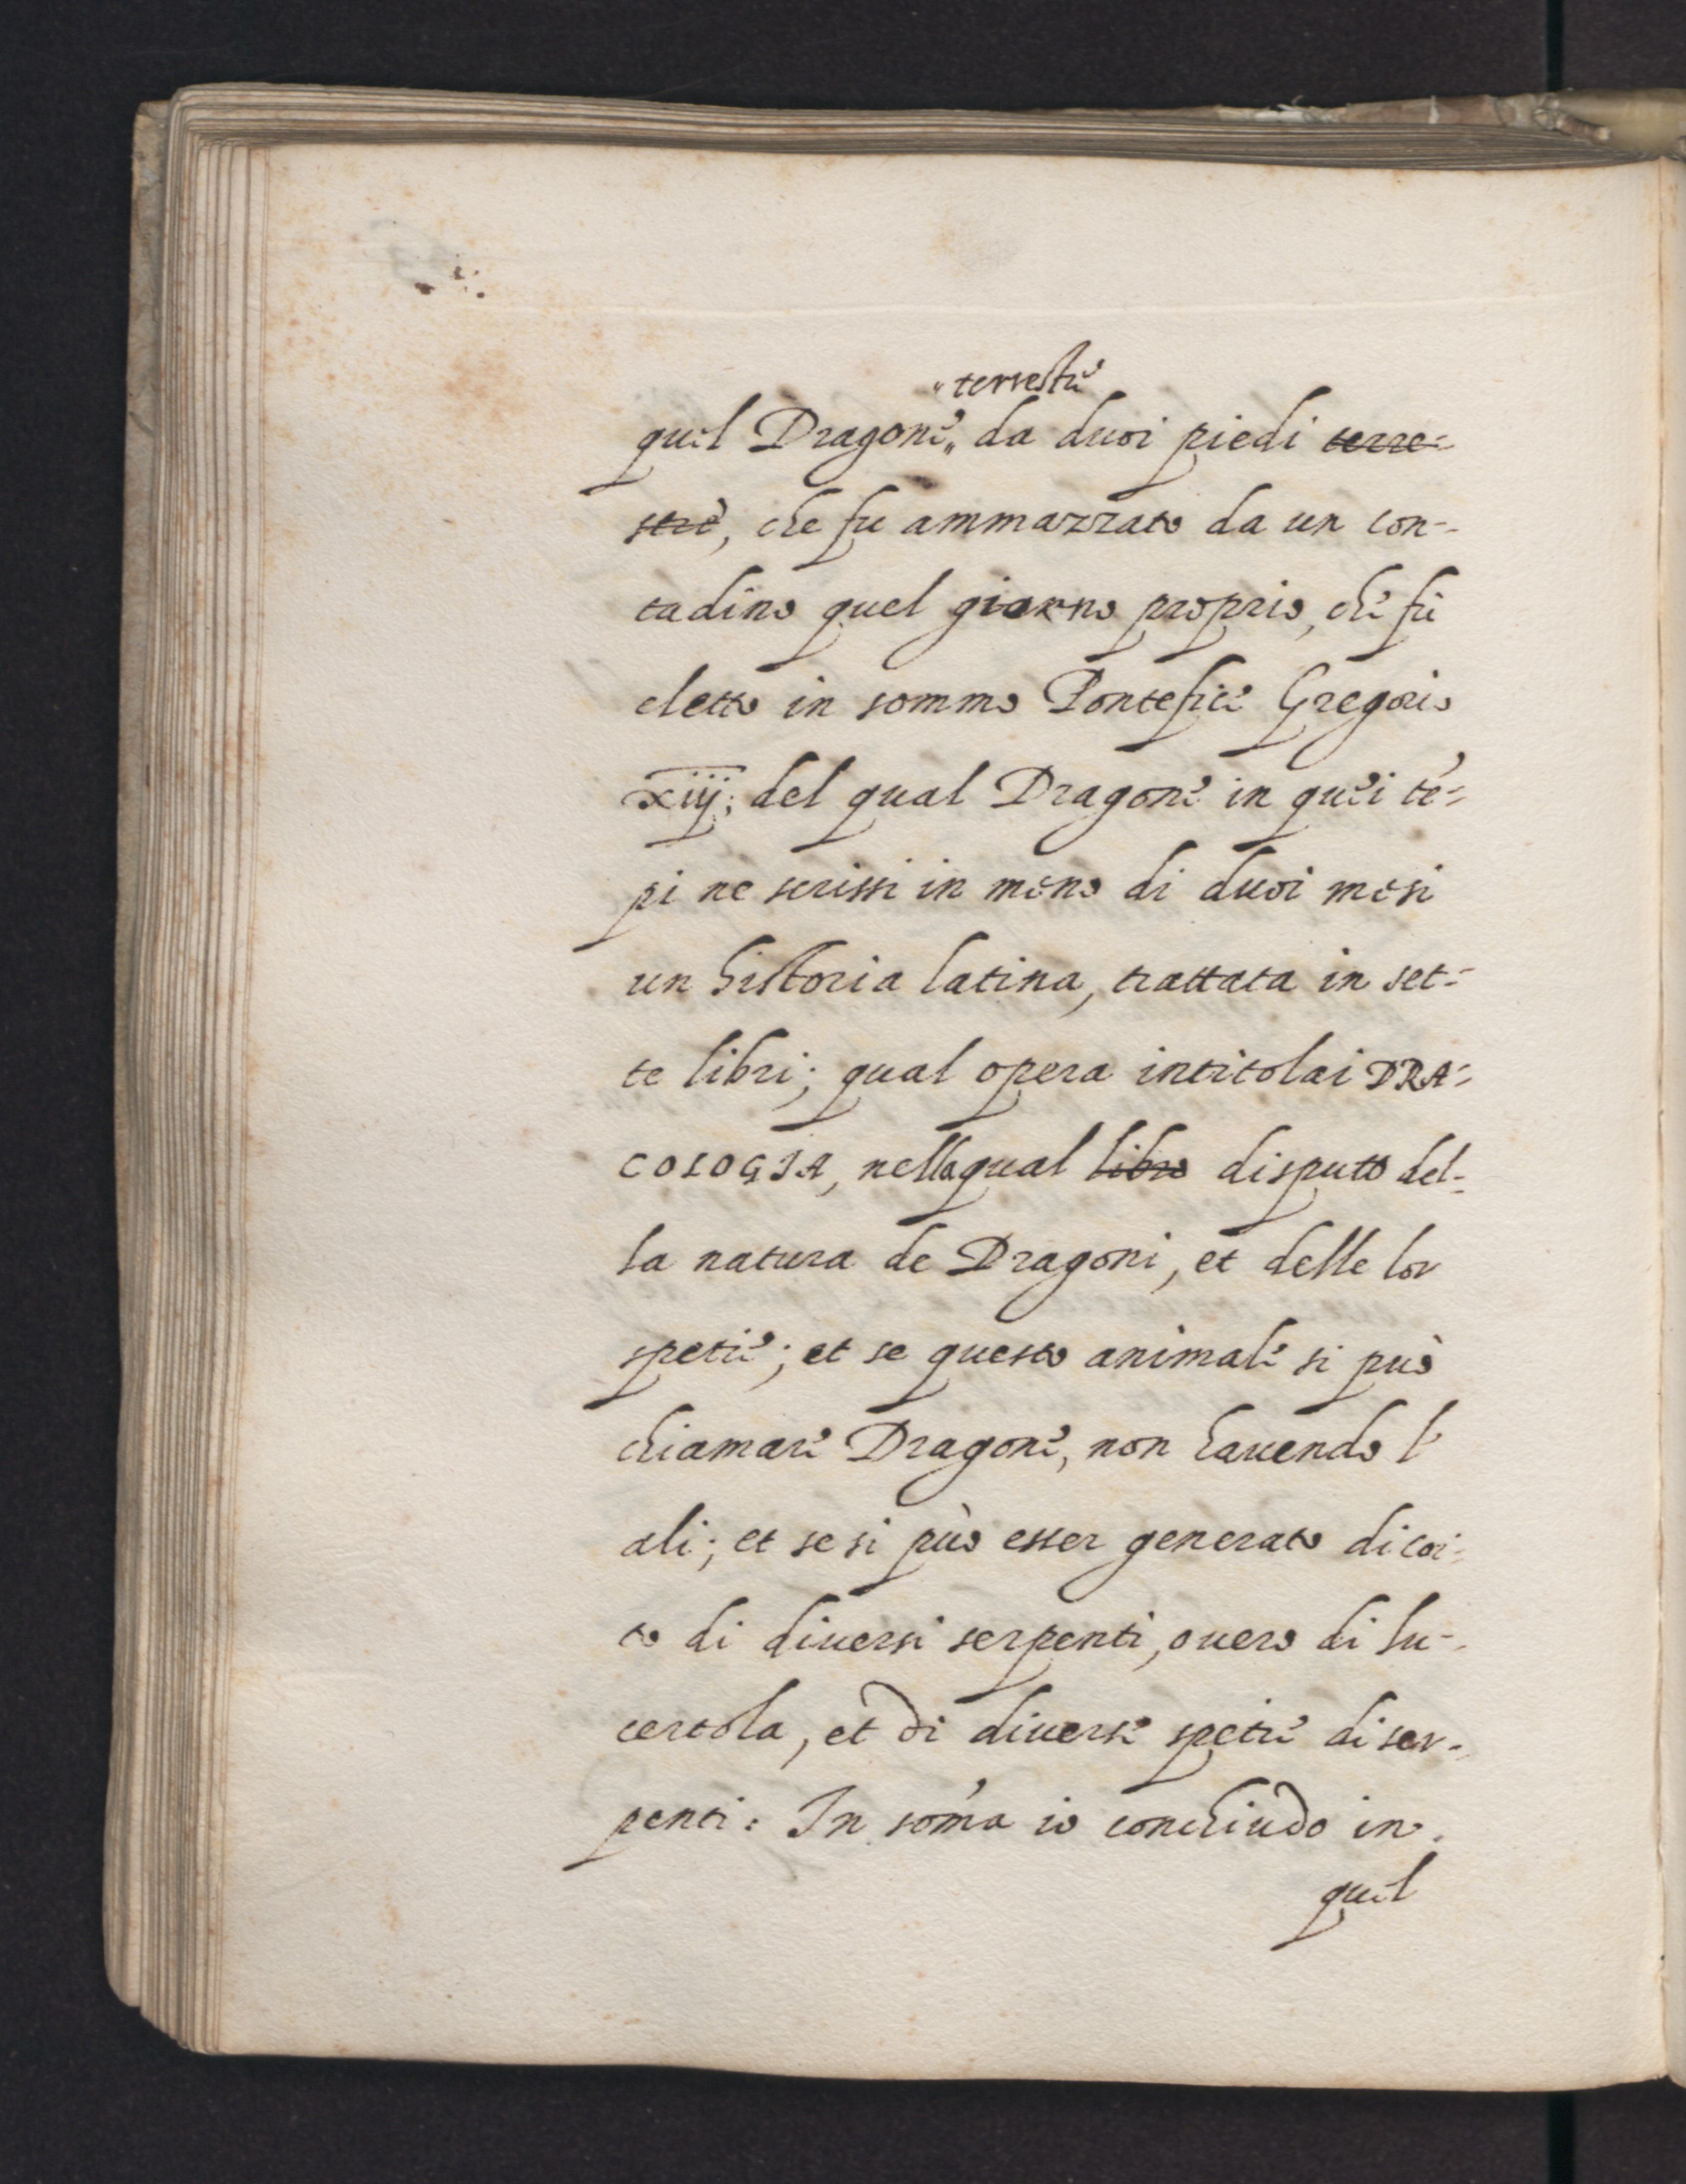 terrestre
quel Dragone da duoi piedi terre=
stre, che fu ammazzato da un con-
tadino quel giorno proprio, che fù
eletto in sommo Pontefice Gregorio
xiij; del qual Dragone in quei té=
pi ne scrissi in meno di duoi mesi
un historia latina, trattata in set=
te libri; qual opera intitolai DRA=
COLOGIA, nella qual libro disputo del-
la natura de Dragoni, et delle lor
spetie; et se questo animale si può
chiamare Dragone, non havendo l'
ali; et se si può esser generato di coi-
to di diversi serpenti, overo di lu-
certola, et di diverse spetie di ser-
penti: In soma io conchiudo in
quel